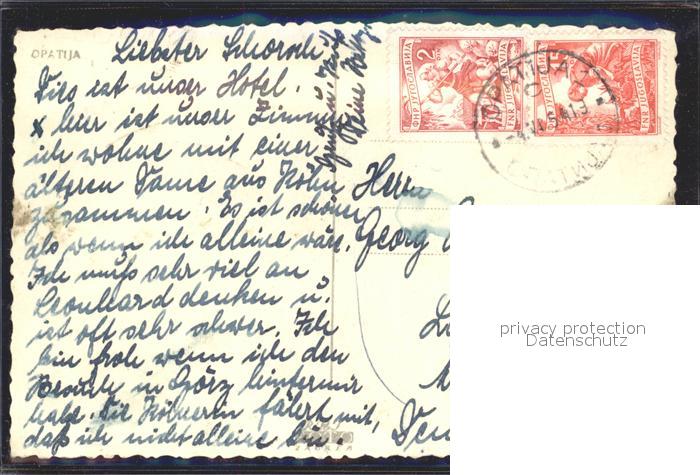 OPATIJA
Liebster Schorsch!
Dies ist unser Hotel.
x hier ist unser Zimmer
ich wohne mit einer
älteren Dame aus Köln
zusammen. Es ist schöner
als wenn ich alleine wäre.
Ich muß sehr viel an
Leonhard denken u.
ist oft sehr schwer. Ich
bin froh wenn ich den
Besuch in Görz hinter mir
habe. Die Kölnerin fährt mit,
daß ich nicht alleine bin.
u.
Deine
2
ФНР ЈУГОСЛАВИЈА
FNR JUGOSLAVIJA
ФНР ЈУГОСЛАВИЈА
FNR JUGOSLAVIJA
OPATIJA
Herrn
Georg
privacy protection
Datenschutz
ZAGREB